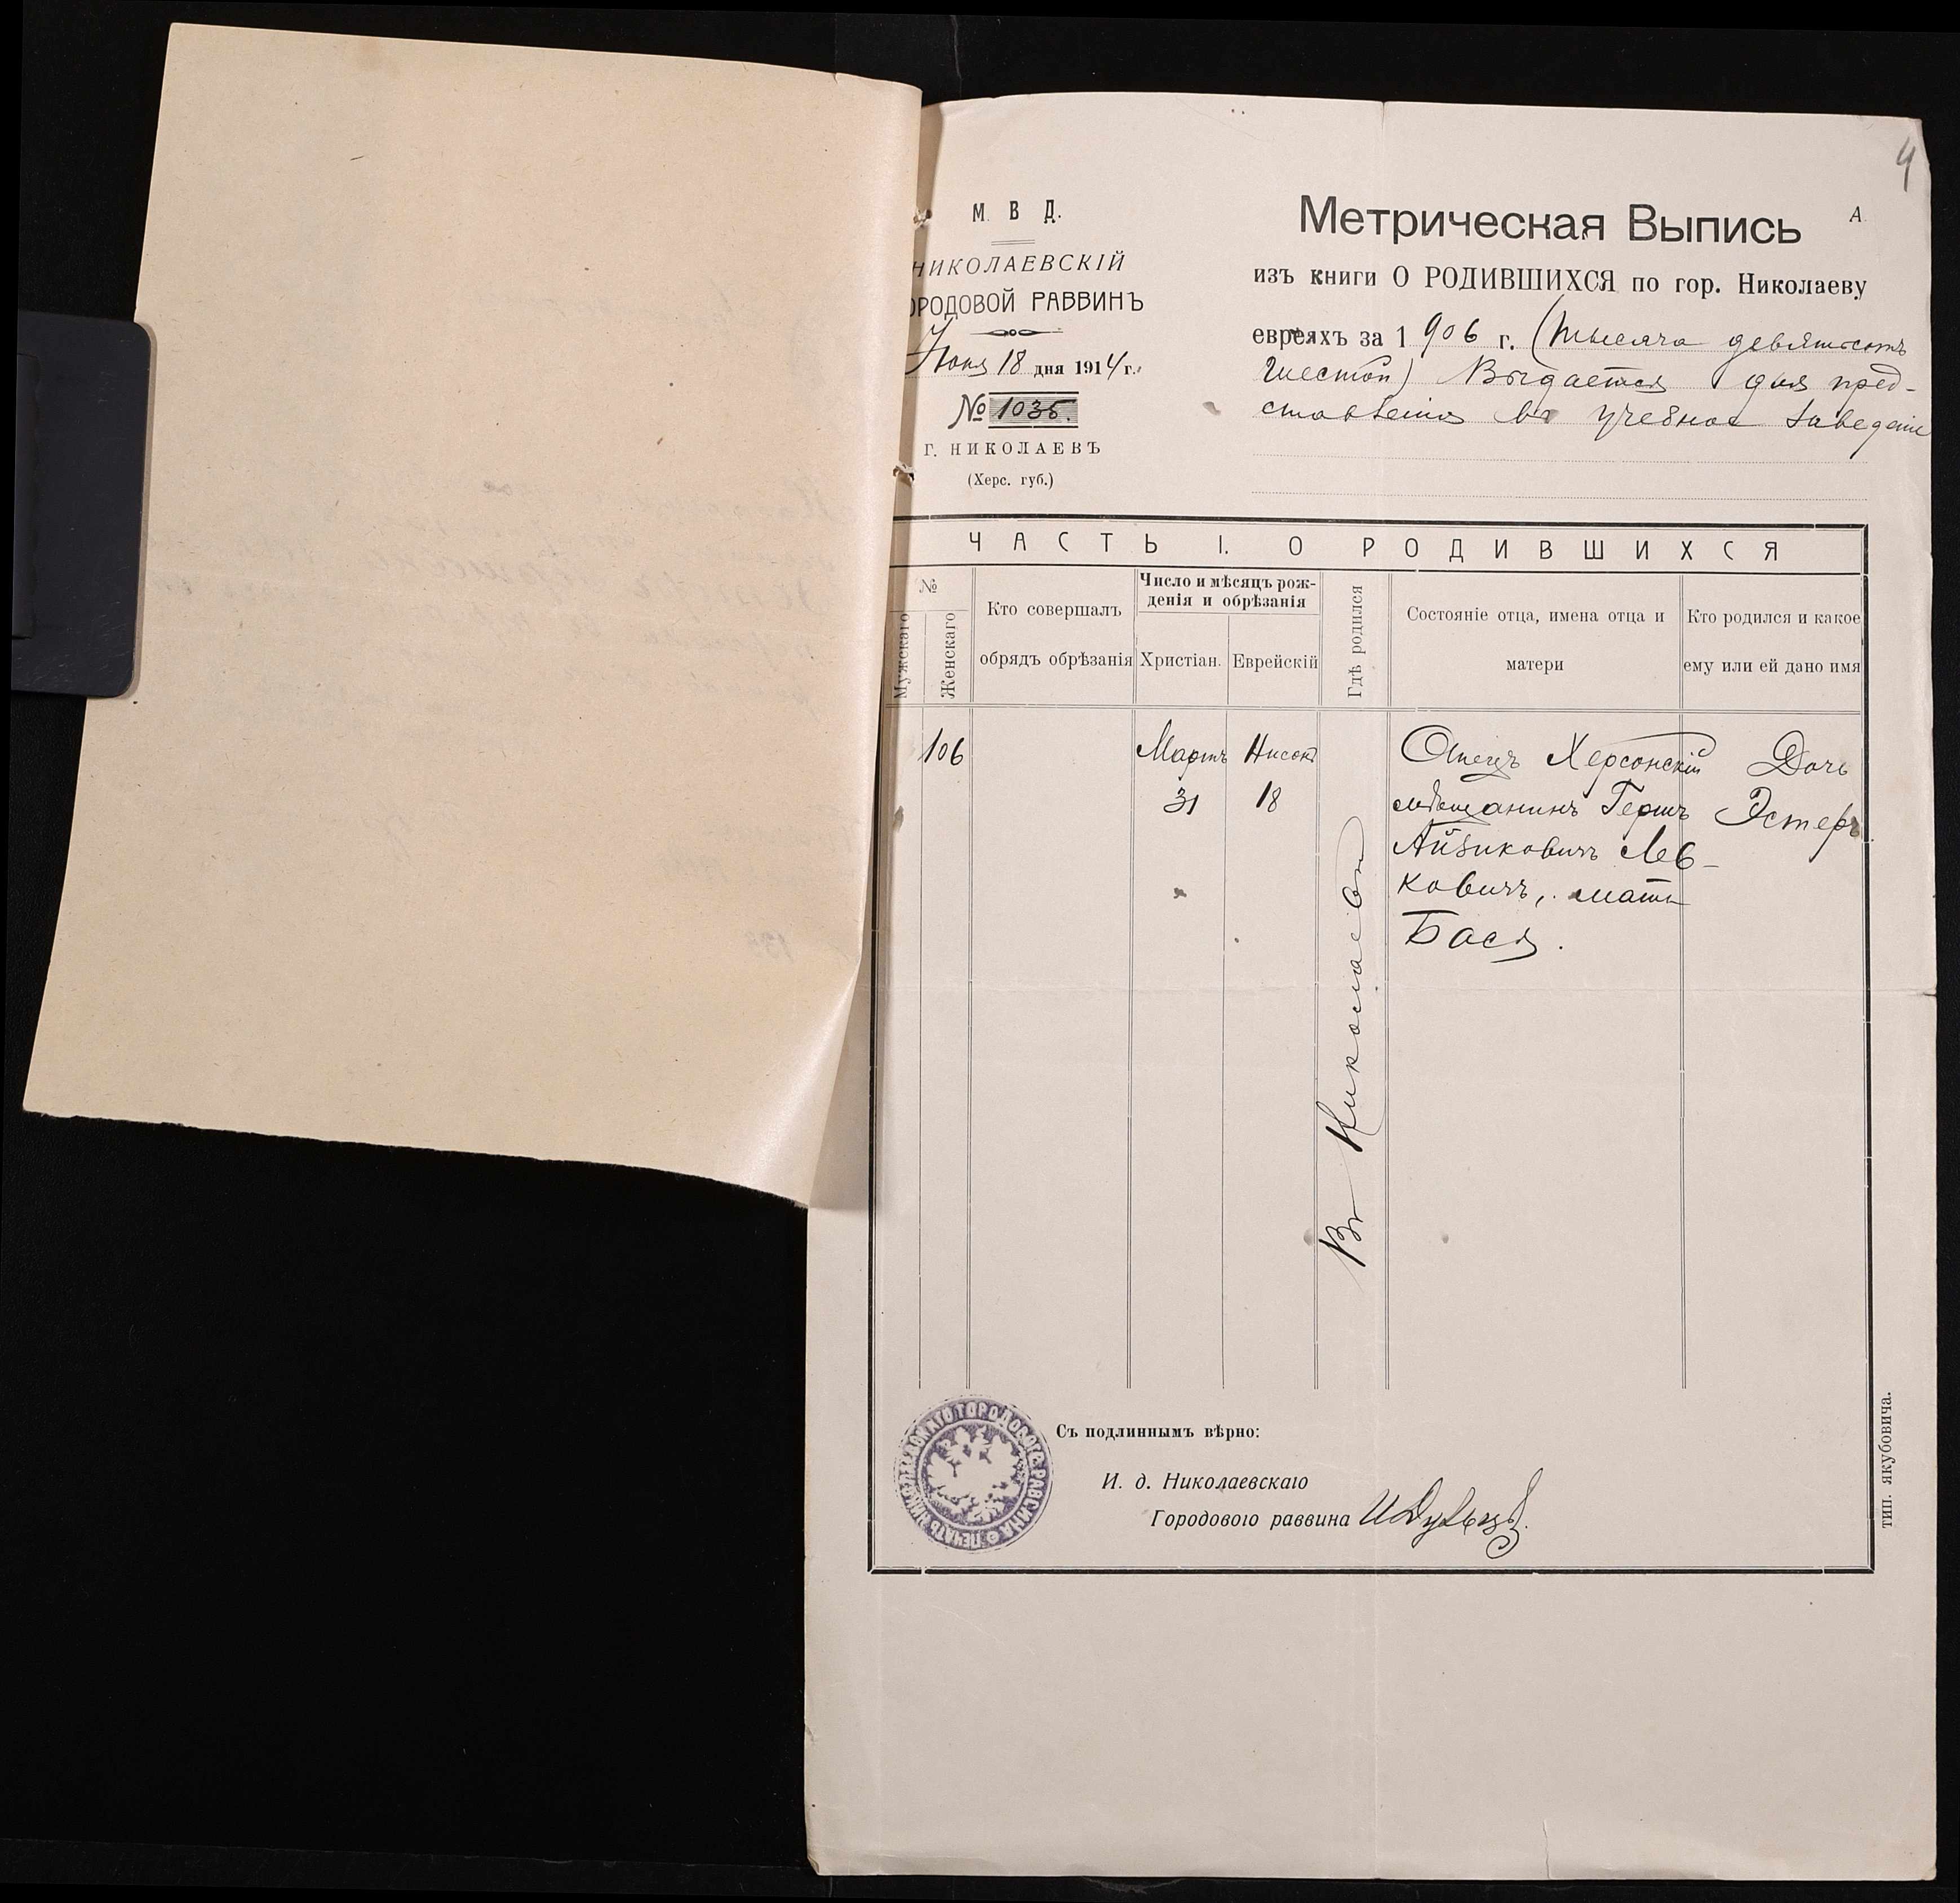 4
М. В. Д.
НИКОЛАЕВСКІЙ
ОРОДОВОЙ РАВВИНЪ
Іюня 18 дня 1914 г.
№ 1035.
Г. НИКОЛАЕВЪ
(Херс. губ.)
Метрическая Выпись
А.
изъ книги О РОДИВШИХСЯ по гор. Николаеву
евреяхъ за 1906 г. (тысяча девятьсотъ
шестой) Выдается для пред-
ставленія въ учебное заведеніе
ЧАСТЬ I. О РОДИВШИХСЯ
№
Мужскаго
Женскаго
Кто совершалъ
обрядъ обрѣзанія
Число и мѣсяцъ рож-
денія и обрѣзанія
Христіан.
Еврейскій
Гдѣ родился
Состояніе отца, имена отца и
матери
Кто родился и какое
ему или ей дано имя
106
Мартъ
31
Нисонъ
18
Въ Николаевѣ
Отецъ Херсонскій
мѣщанинъ Гершъ
Айзиковичъ Лев-
ковичъ, мать
Бася.
Дочь
Эстеръ
Съ подлиннымъ вѣрно:
И. д. Николаевскаго
Городового раввина
ПЕЧАТЬ НИКОЛАЕВСКАГО ГОРОДОВОГО РАВВИНА
тип. якубовича.